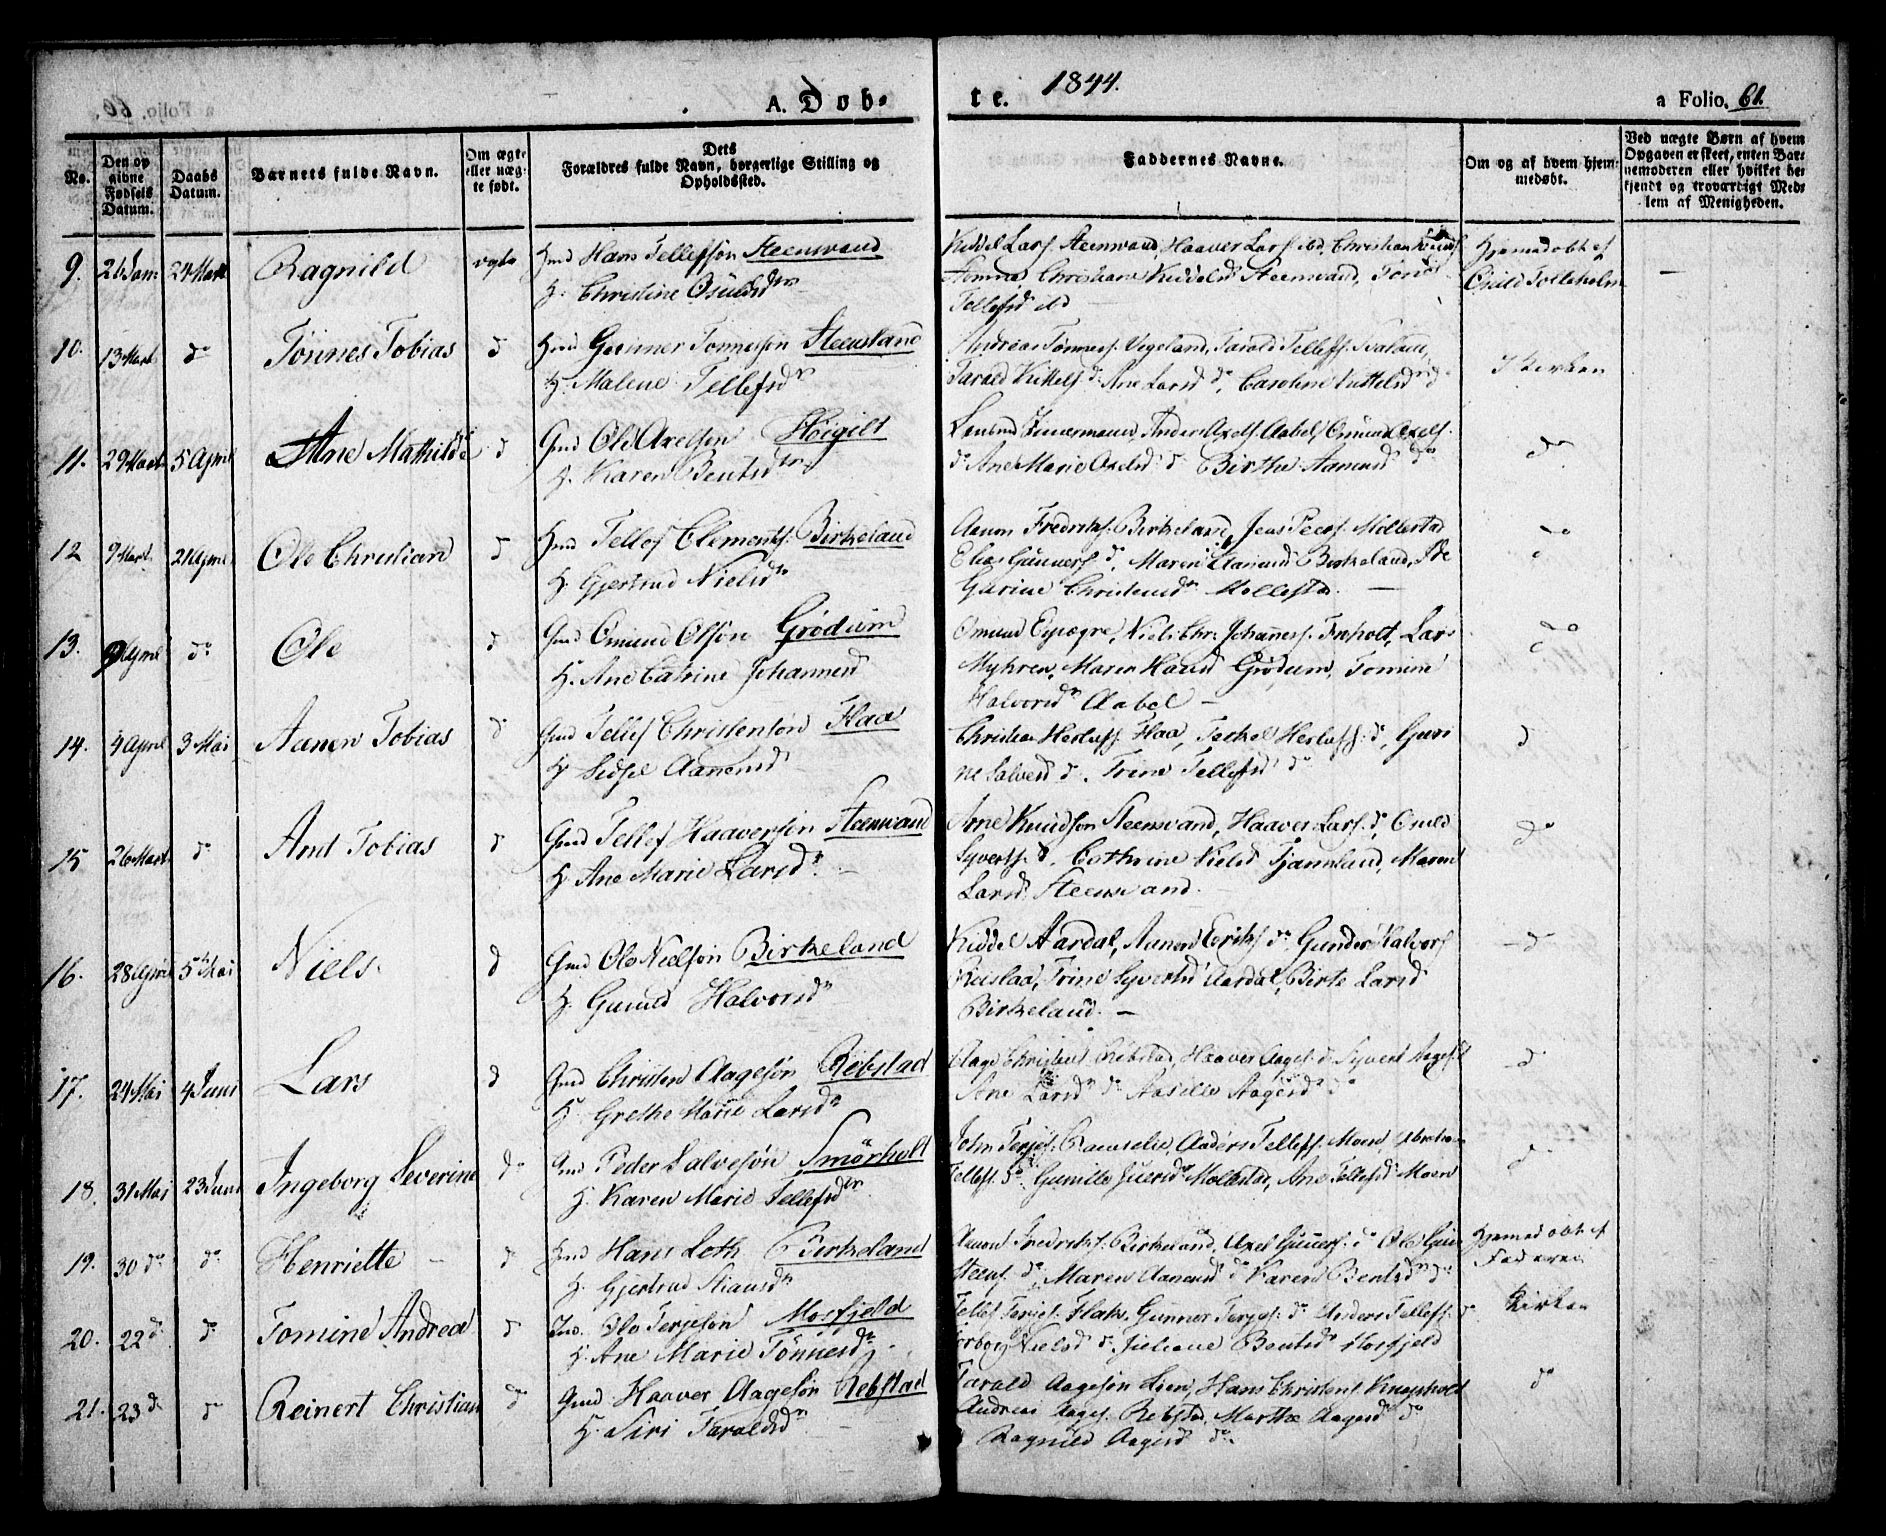 1844.
A. Døb-
te.
a Folio. 61.
No.
Den opgivne Fødsels Datum.
Daabs Datum.
Barnets fulde Navn.
Om ægte eller uægte født.
Dets Forældres fulde Navn, borgerlige Stilling og Opholdssted.
Faddernes Navne.
Om og af hvem hjemmedøbt.
Ved uægte Børn af hvem Opgaven er skeet, enten Barnemoderen eller hvilket bekjendt og troværdigt Medlem af Menigheden.
9. 26 Jan 24 Mart Ragnild ægte Gmd Hans Tellefsøn Steenvand
H. Christine Osuldsdtr
Kiddel Lars. Steenvand, Haaver Lars. ibd, Christian Knuds.
Christiane Kiddelsd Steenvand,
Tellefsd ibd
Hjemmedøbt af
10. 13 Mart do Tönnes Tobias d Gmd Gunner Tönnesøn Steensland
H. Malene Tellefsdr
Andreas Tønnes. Vegeland, Tarald Tellefs.
Tarald Kittels. d. Ane Larsd do, Caroline Kittelsd d
I Kirken
11. 29 Mart 5 April Ane Mathilde d Gmd Ole Axelsøn Höigilt
H. Karen Bentsdtr
Anders Axels. Aabel, Osmund Axels.
d. Ane Marie Axelsd d Birthe Aamund do
do
12 9 Mart. 21 April Ole Christian d Gmd Tellef Clements. Birkeland
H. Gjertrud Nielsdr
Aanon Fredriks. Birkeland, Jens Peders. Mollestad
Elias Gunners d, Maren Aanensd Birkeland,
Gurine Christensdr Mollestad. —
do
13. April do Ole d Gmd Omund Olsøn Grödum
H. Ane Catrine Johannesd
Omund Eppegre, Niels Chr. Johannes. Frøholt, Lars
Myhren, Maren Grödum, Tomine
Halvorsdr Aabel —
do
14. 4 April 3 Mai Aanen Tobias d Gmd Tellef Christensøn Flaa
H Sidsel Aanensd
Christen Herlofs. Flaa, Terkel Herlofs. do, Guri
ne Salvesd d. Trine Tellefsd do
d
15 26 Mart do Arnt Tobias d Gmd Tellef Haaversøn Steenvand
H. Ane Marie Larsdr. —
Arne Knudsøn Steenvand, Haaver Lars. d, Osuld
Syverts. d. Cathrine Nielsd Tjamsland, Maren
Larsd. Steenvand.
do
16. 28 April 5 Mai Niels. d Gmd Ole Nielsøn Birkeland
H. Gunild Halvorsdr
Kiddel Aardal, Aanen Eriks do Gunder Halvors
Risslaa, Trine Syvertsd Aardal, Birte Larsd
Birkeland. —
d
17. 24 Mai 4 Juni Lars d Gmd Christen Aagesøn Rebstad
H. Grethe Marie Larsdr
Aage Christens Rebstad, Haaver Aages. d Syvert Aages d
Ane Larsd do Aasille Aagesd do
d
18. 31 Mai 23 Juni Ingeborg Severine do Gmd Peder Salvesøn Smörholt
H. Karen Marie Tellefsdtr
John Terjes. Ramselie, Anders Tellefs. Moen, Abraham
Tellefs. do Gunille Mollestad, Ane Tellefsd Moen
d
19. 30 do do Henriette — d Gmd Hans Loth Birkeland
H. Gjertrud
Aanon Fredriks. Birkeland, Axel Gunners. d Ole Gun
steens. d. Maren Aanensd do Karen Bentsdr do
Hjemmedøbt af
Faderen
20. 22 d d Tomine Andrea d Ole Terjesøn Mosfjeld
H. Ane Marie Tönnesdr
Tellef Terjes. Flak, Gunner Terjes. do Anders Tellefs. d.
Torborg Nielsd d. Juliane Bentsd Mosfjeld
Kirken
21. 23 d d Reinert Christian do Gmd Haaver Aagesøn Rebstad
H. Siri Taraldsdr
Tarald Aagesøn Lien, Hans Christens Knepholt
Andreas Aages. Rebstad, Marthe Aagesd do
Ragnild Aagesd do
do